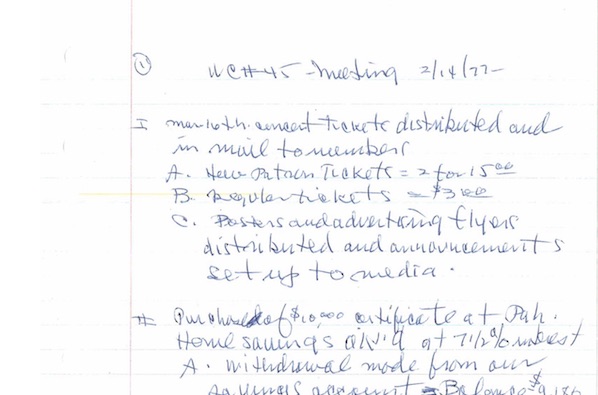 ① WC#45 - Meeting 2/14/77-
I mar. 16th. concert Tickets distributed and
in mail to members
A. New Patron Tickets = 2 for 15 00
B. Regular tickets = $3 00
C. Posters and advertising flyers
distributed and announcements
set up to media.
II Purchased of $10,000 certificate at
Home savings at 7 1/2 % interest
A. Withdrawal made from our
savings account Balance $